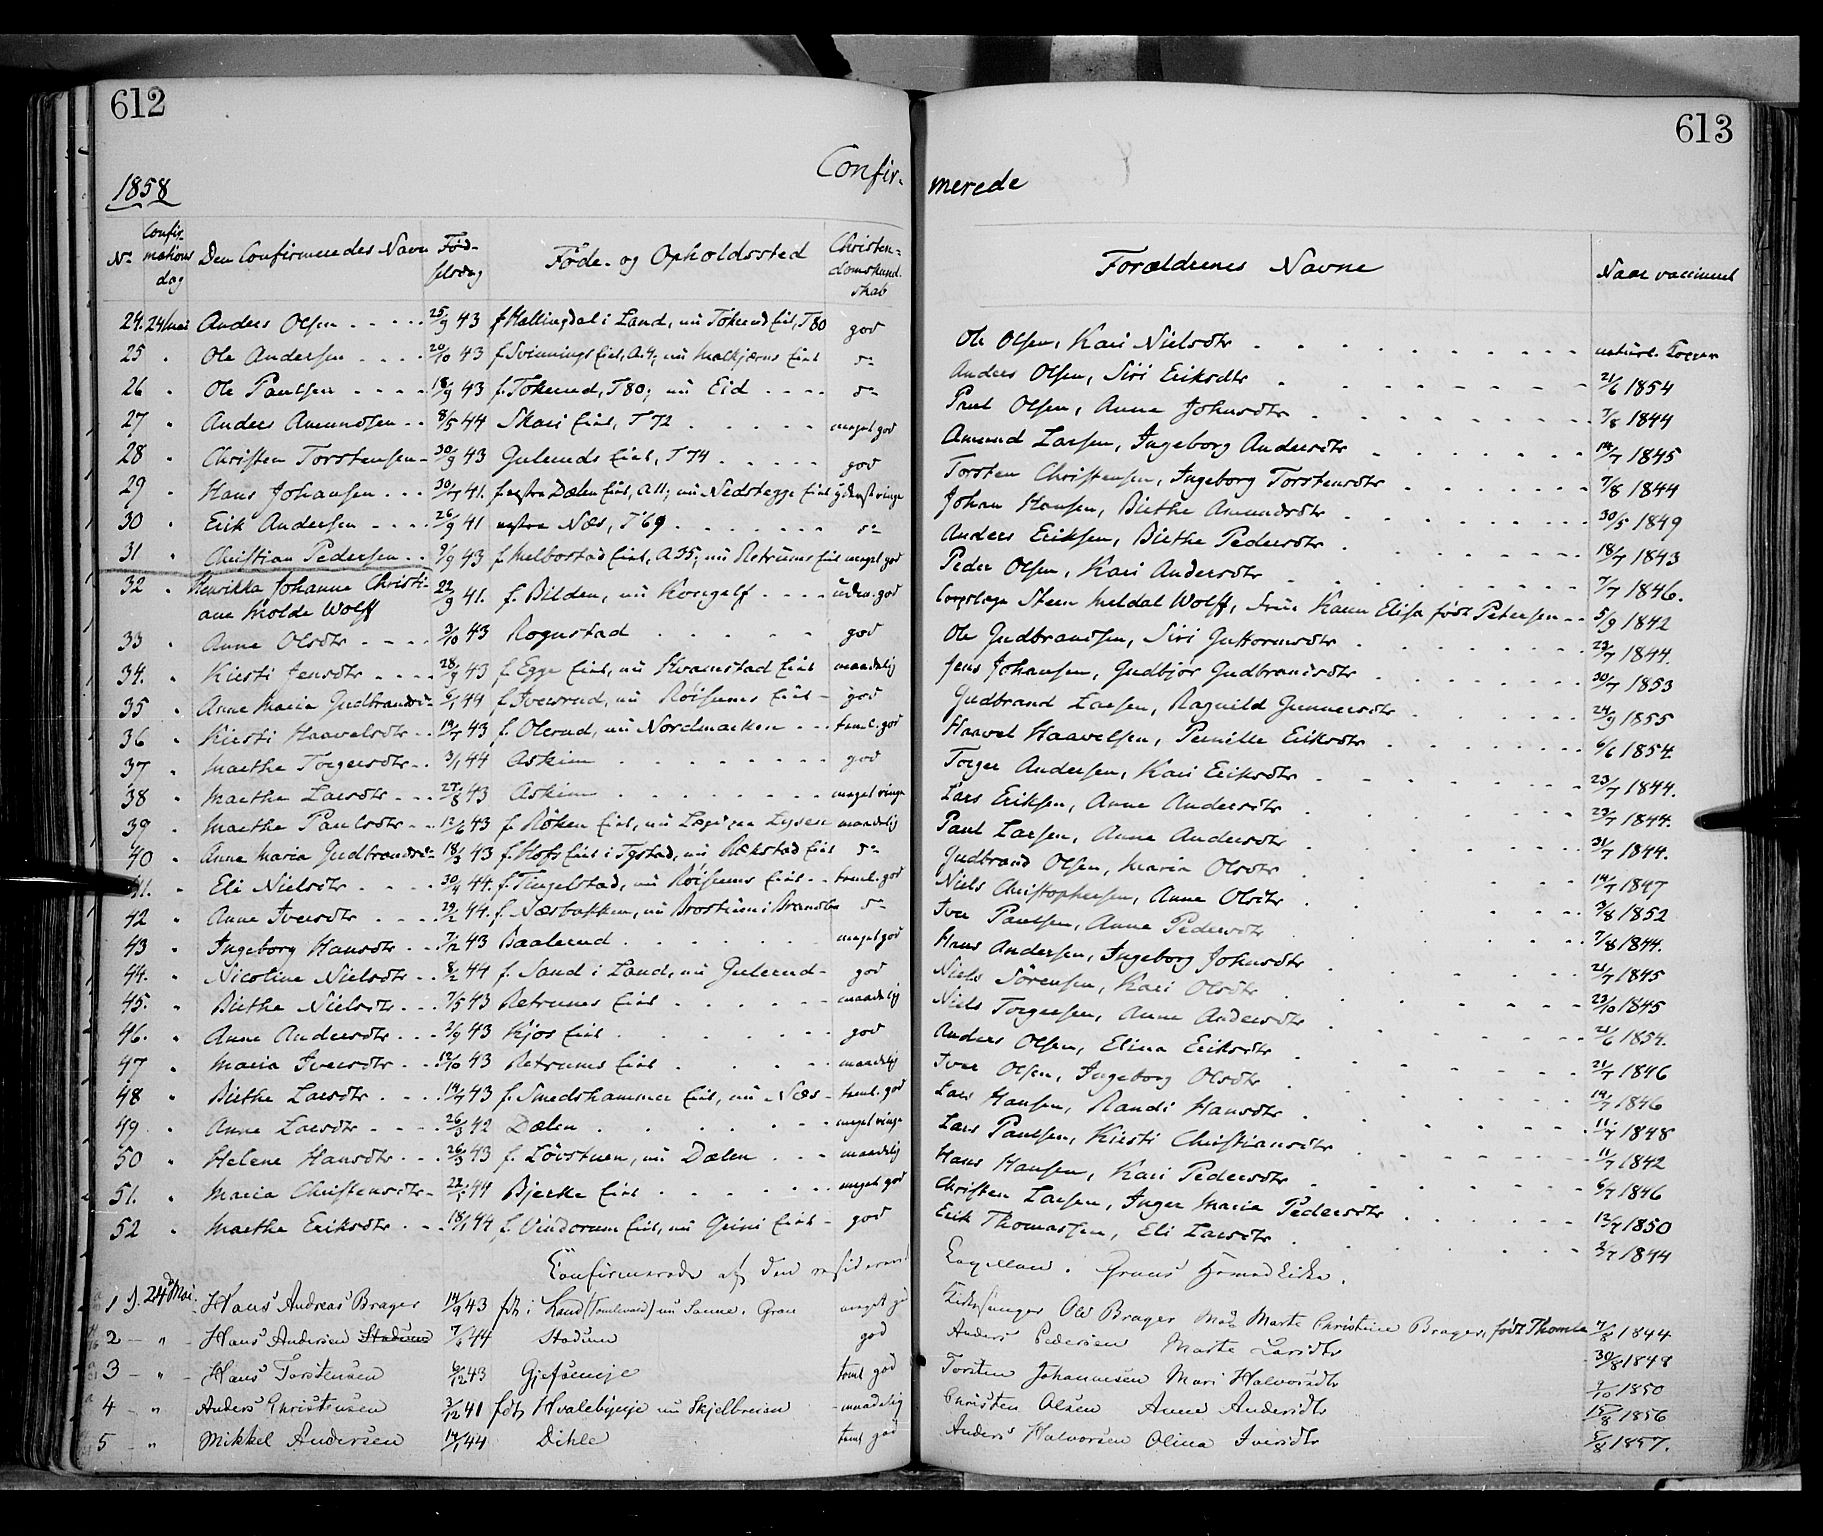 612
613
Confir- merede
1858
No Confirmations dag Den Confirmeredes Navn Fødselsdag Føde- og Opholdssted Christendomskundskab Forældrenes Navne Naar vaccineret
24. 24 Mai Anders Olsen 25/9 43 f. Hallingdal i Land, nu Tokerud Eiet, T 80 god Ole Olsen, Kari Nielsdtr naturl. Kopper
25 " Ole Andersen 20/10 43 f. Svinnings Eiet, A.4; nu Eiet do Anders Olsen, Siri Eriksdtr 21/6 1854
26 " Ole Paulsen 18/9 43 f. Tokerud, T 80; nu Eid do Paul Olsen, Anne Johnsdtr 7/8 1844
27 " Anders Amundsen 8/5 44 Skari Eiet, T 72 meget god Amund Larsen, Ingeborg Andersdtr 14/7 1845
28 " Christen Torstensen 30/9 43 Guleruds Eiet, T 74 god Torsten Christensen, Ingeborg Torstensdtr 7/8 1844
29 " Hans Johansen 30/7 41. f. østre Dælen Eiet, A 11; nu Nedstegge Eiet yderst ringe Johan Hansen, Birthe Amundsdtr 30/5 1849
30 " Erik Andersen 26/9 41 Næs, T 69 do Anders Eriksen, Birthe Pedersdtr 18/7 1843
31 " Christian Pedersen 9/9 43 f. Melbostad Eiet, A 35; nu Retrums Eiet meget god Peder Olsen, Kari Andersdtr 7/7 1846.
32 " Henrikka Johanne Christi- 22/9 41. f. Bilden, nu Kongelf uden. god Steen Meldal Wolff, Fru Karen Elisa født Petersen 5/9 1842
ane Molde Wolff
33 " Anne Olsdtr 3/10 43 Rognstad god Ole Gudbrandsen, Siri Guttormsdtr 23/7 1844.
34. " Kirsti Jensdtr 28/9 43 f. Egge Eiet, nu Kvamstad Eiet maadelig Jens Johansen, Gudbjør Gudbrandsdtr 30/7 1853
35 " Anne Maria Gudbrandsd 6/1 44 f. Iversrud, nu Røisums Eiet god Gudbrand Larsen, Ragnild Gunnersdtr 24/9 1855
36 " Kirsti Haavelsdtr 19/7 43 f. Olerud, nu Nordmarken teml. god Haavel Haavelsen, Pernille Eriksdtr 6/6 1854
37 " Marthe Torgersdtr 3/1 44 Askim god Torger Andersen, Kari Eriksdtr 23/7 1844.
38 " Marthe Larsdtr 27/8 43 Askim meget ringe Lars Eriksen, Anne Andersdtr 23/7 1844.
39 " Marthe Paulsdtr 12/6 43 f. Røken Eiet, nu Lysen maadelig Paul Larsen, Anne Andersdtr 31/7 1844.
40 " Anne Maria Gudbrandsd 18/3 43 f. Hofs Eiet i Tgstad, nu Rækstad Eiet do Gudbrand Olsen, Maria Olsdtr 14/7 1847
41. " Eli Nielsdtr 30/4 44. f. Tingelstad, nu Røisums Eiet teml. god Niels Christophersen, Anne Olsdtr 3/8 1852
42 " Anne Iversdtr 29/2 44. f. Næsbakken, nu i Brandbu do Iver Paulsen, Anne Pedersdtr 7/8 1844.
43 " Ingeborg Hansdtr 7/12 43 Baalerud meget god Hans Andersen, Ingeborg Johnsdtr 21/7 1845
44. " Nicoline Nielsdtr 8/2 44 f. Sand i Land, nu Gulerud god Niels Sörensen, Kari Olsdtr 23/10 1845
45. " Birthe Nielsdtr 7/5 43 Retrums Eiet maadelig Niels Torgersen, Anne Andersdtr 21/6 1854.
46. " Anne Andersdtr 2/9 43 Kjos Eiet god Anders Olsen, Elina Eriksdtr 21/7 1846
47 " Maria Iversdtr 12/10 43 Retrums Eiet maadelig Iver Olsen, Ingeborg Olsdtr 14/7 1846
48 " Birthe Larsdtr 14/7 43 f. Smedshammer Eiet, nu Næs teml. god Lars Hansen, Randi Hansdtr 11/7 1848
49 " Anne Larsdtr 26/3 42 Dælen meget ringe Lars Paulsen, Kirsti Christiansdtr 11/7 1842
50 " Helene Hansdtr 26/3 43 f. Løvstuen, nu Dælen maadelig Hans Hansen, Kari Pedersdtr 6/7 1846
51. " Maria Christensdtr 22/1 44 Bjerke Eiet meget god Christen Larsen, Inger Maria Pedersdtr 12/7 1850
52 " Marthe Eriksdtr 18/1 44 f. Vindorum Eiet, nu Grini Eiet god Erik Thomassen, Eli Larsdtr 2/7 1844
Confirmerede af den residerende Capellan. Grans
1 d. 24de Mai Hans Andreas Brager 14/9 43 fdt i Land (Tomlevold) nu Sanne, Gran meget god Kirkesanger Ole Brager Marte Christine Brager, født Thomle 7/8 1844
2 " Hans Andersen Stadum 7/6 44 Stadum god Anders Pedersen Marte Larsdtr 30/8 1848
3 " Hans Torstensen 6/12 43 Gjefseneje teml god Torsten Johannesen Mari Halvorsdtr 2/10 1850
4 " Anders Christensen 3/12 41 fdt Hvalebyeje nu Skjelbreien maadelig Christen Olsen Anne Andersdtr 15/8 1856
5 " Mikkel Andersen 14/1 44 Dihle teml god Anders Halvorsen Olina Iversdtr 5/8 1857.